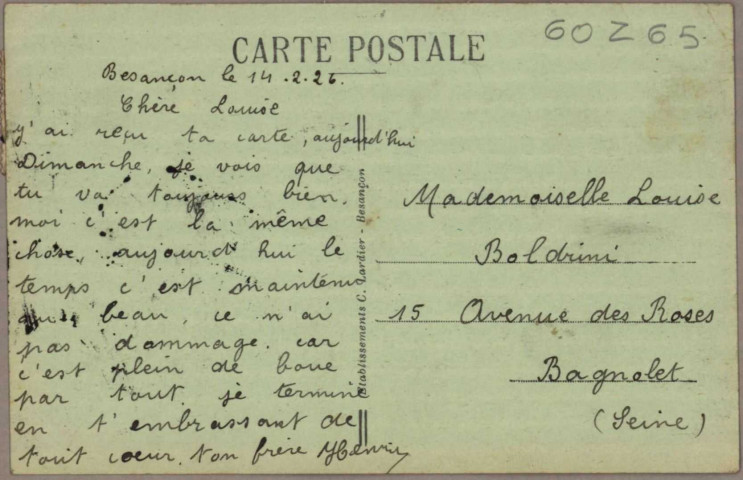 60 Z 65
CARTE POSTALE
Besançon le 14.2.26.
Chère Louise
j'ai reçu ta carte, aujourd'hui
Dimanche, je vois que
tu va toujours bien.
moi c'est la même
chose, aujourd hui le
temps c'est maintenu
au beau, ce n'ai
pas dommage. car
c'est plein de boue
par tout. je termine
en t'embrassant de
tout coeur. ton frère Henri
Etablissements C. Lardier - Besançon
Mademoiselle Louise
Boldrini
15 Avenue des Roses
Bagnolet
(Seine)